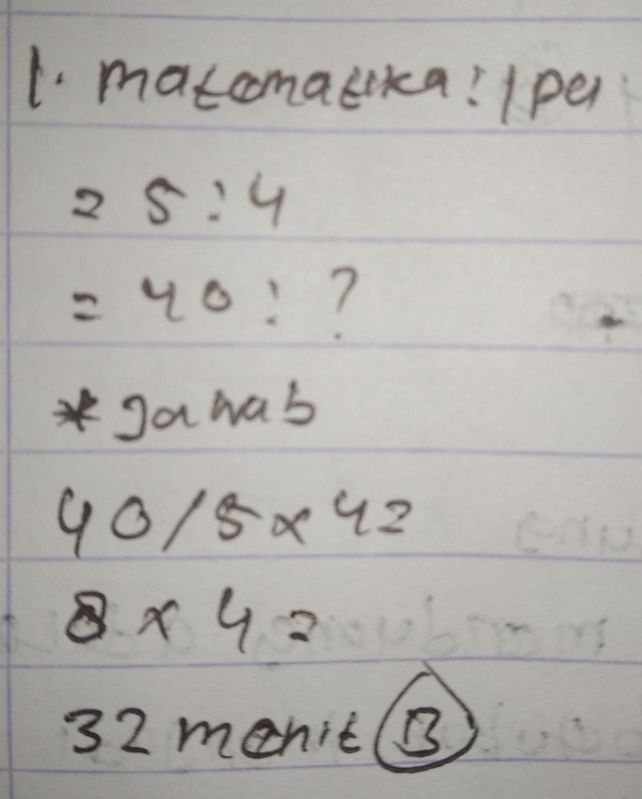 1. matematika : Ipa
= 5 : 4
= 40 : ?
* Jawab
40/5 x 4 =
8 x 4 =
32 menit B